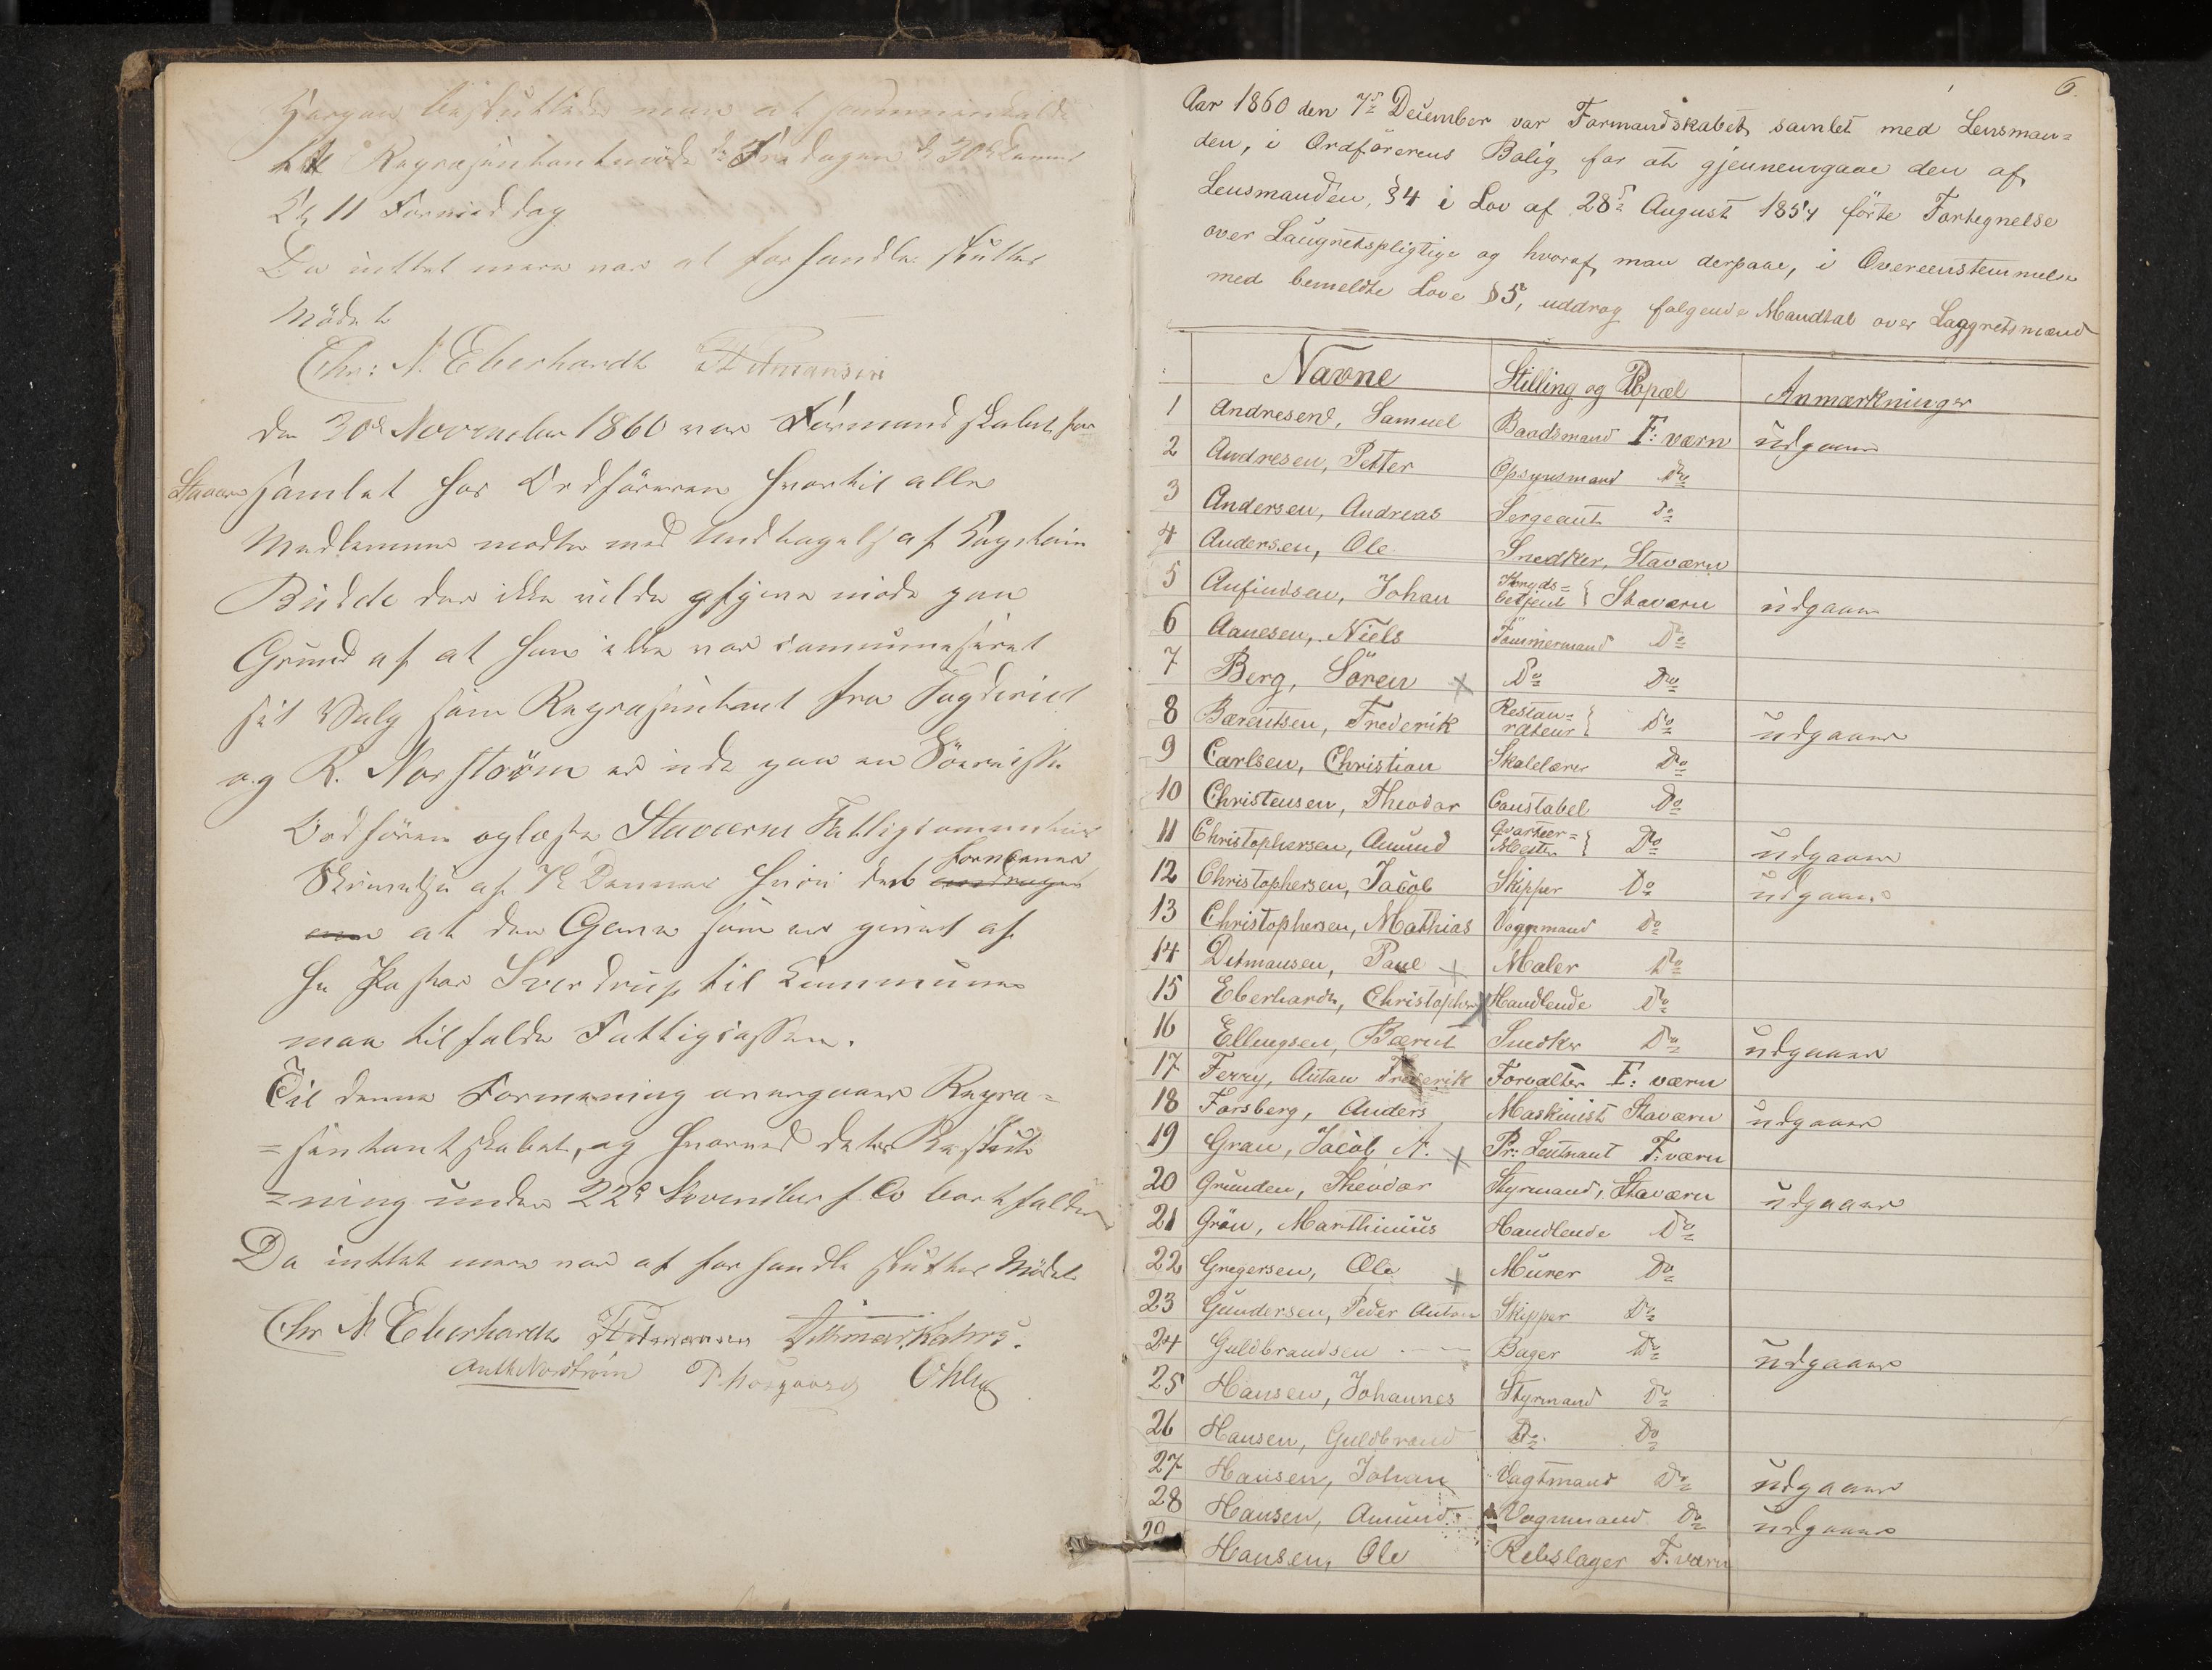 besluttedes man at sammenkalde
Repræsentantmöde Fredagen d 30te dennes
Kl 11 Formiddag
Da intet mere var at forhandle sluttes
Mödet
Chr: N. Eberhardt
Den 30te November 1860 var Formandskabet for
Stavern samlet hos Ordföreren hvortil alle
Medlemmer mödte med Undtagelse af Captain
Budde der ikke vilde möde paa
Grund af at han ikke var
sit Valg som Repræsentant fra
og R. Norström er ude paa en Söereise
Ordföreren oplæste Staværns Fattigcommissions
Skrivelse af dennes hvori det formenes
at den Gave som er givet af
Hr Pastor Sverdrup til Communen
maa tilfalde Fattigcassen.
Til denne Formening overgaaer Repræ=
=sentantskabet, og hvorved dets Beslut
=ning under 22de November f. A. bortfalder
Da intet mere var at forhandle sluttes Mödet
Chr N Eberhardt
Anth Nordström
6.
Aar 1860 den 7de December var Formandskabet samlet med Lensman=
den, i Ordförerens Bolig for at gjennemgaae den af
Lensmanden, §4 i Lov af 28de August 1854 förte Fortegnelse
over Laugretspligtige og hvoraf man derpaae, i Overeenstemmelse
med bemeldte Lovs §5, uddrog fölgende Mandtal over Lagretsmænd
Navne Stilling og Bopæl Anmærkninger
1 Andresen, Samuel Baadsmand F: værn udgaaer
2 Andresen, Petter Opsynsmand Do
3 Andersen, Andreas Sergeant Do
4 Andersen, Ole Snedker, Staværn
5 Anfindsen, Johan Kryds=betjent } Staværn udgaaer
6 Aanesen, Niels Tömmermand Do
7 Berg, Sören x Do Do
8 Bærentsen, Frederik Restau=rateur } Do udgaaer
9 Carlsen, Christian Skolelærer Do
10 Christensen, Theodor Constabel Do
11 Christophersen, Amund Qvarteer=Mester } Do udgaaer
12 Christophersen, Jacob Skipper Do udgaaer
13 Christophersen, Mathias Vognmand Do
14 Ditmansen, Paul x Maler Do
15 Eberhardt, Christopher x Handlende Do
16 Ellingsen, Bærnt Snedker Do udgaaer
17 Ferry, Anton Frederik Forvalter F: værn
18 Forsberg, Anders Maskinist Staværn udgaaer
19 Grau, Jacob A. x Pr: Leutnant F: værn
20 Grunden, Theodor Styrmand, Staværn udgaaer
21 Grön, Marthinius Handlende Do
22 Gregersen, Ole x Murer Do
23 Gundersen, Peder Anton Skipper Do
24 Guldbrandsen Bager Do udgaaer
25 Hansen, Johannes Styrmand Do
26 Hansen, Guldbrand Do Do
27 Hansen, Johan Vagtmand Do udgaaer
28 Hansen, Amund Vognmand Do udgaaer
29 Hansen, Ole Rebslager F: værn